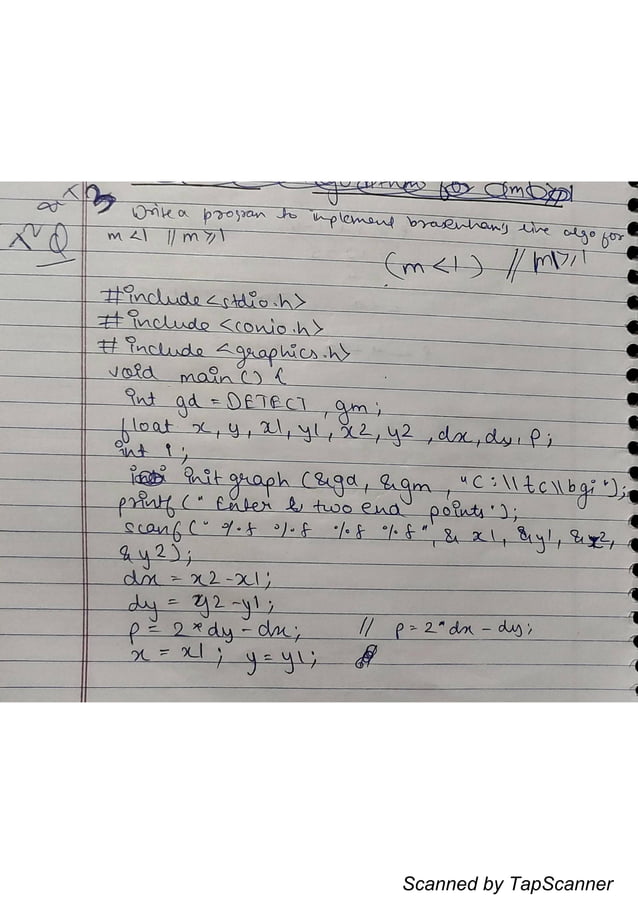 algorithm for
3 Write a program to implement brasenham's line algo for
Q m<1 || m≥1
(m<1) // m≥1
#include<stdio.h>
#include <conio.h>
# include <graphics.h>
void main() {
int gd = DETECT, gm;
float x, y, x1, y1, x2, y2, dx, dy, p;
int i;
initgraph (&gd, &gm, "C:\\tc\\bgi");
printf (" Enter two end points");
scanf (" %f %f %f %f", & x1, &y1, &x2,
&y2);
dx = x2-x1;
dy = y2-y1;
p = 2*dy - dx; // p = 2*dx - dy;
x = x1; y = y1;
Scanned by TapScanner